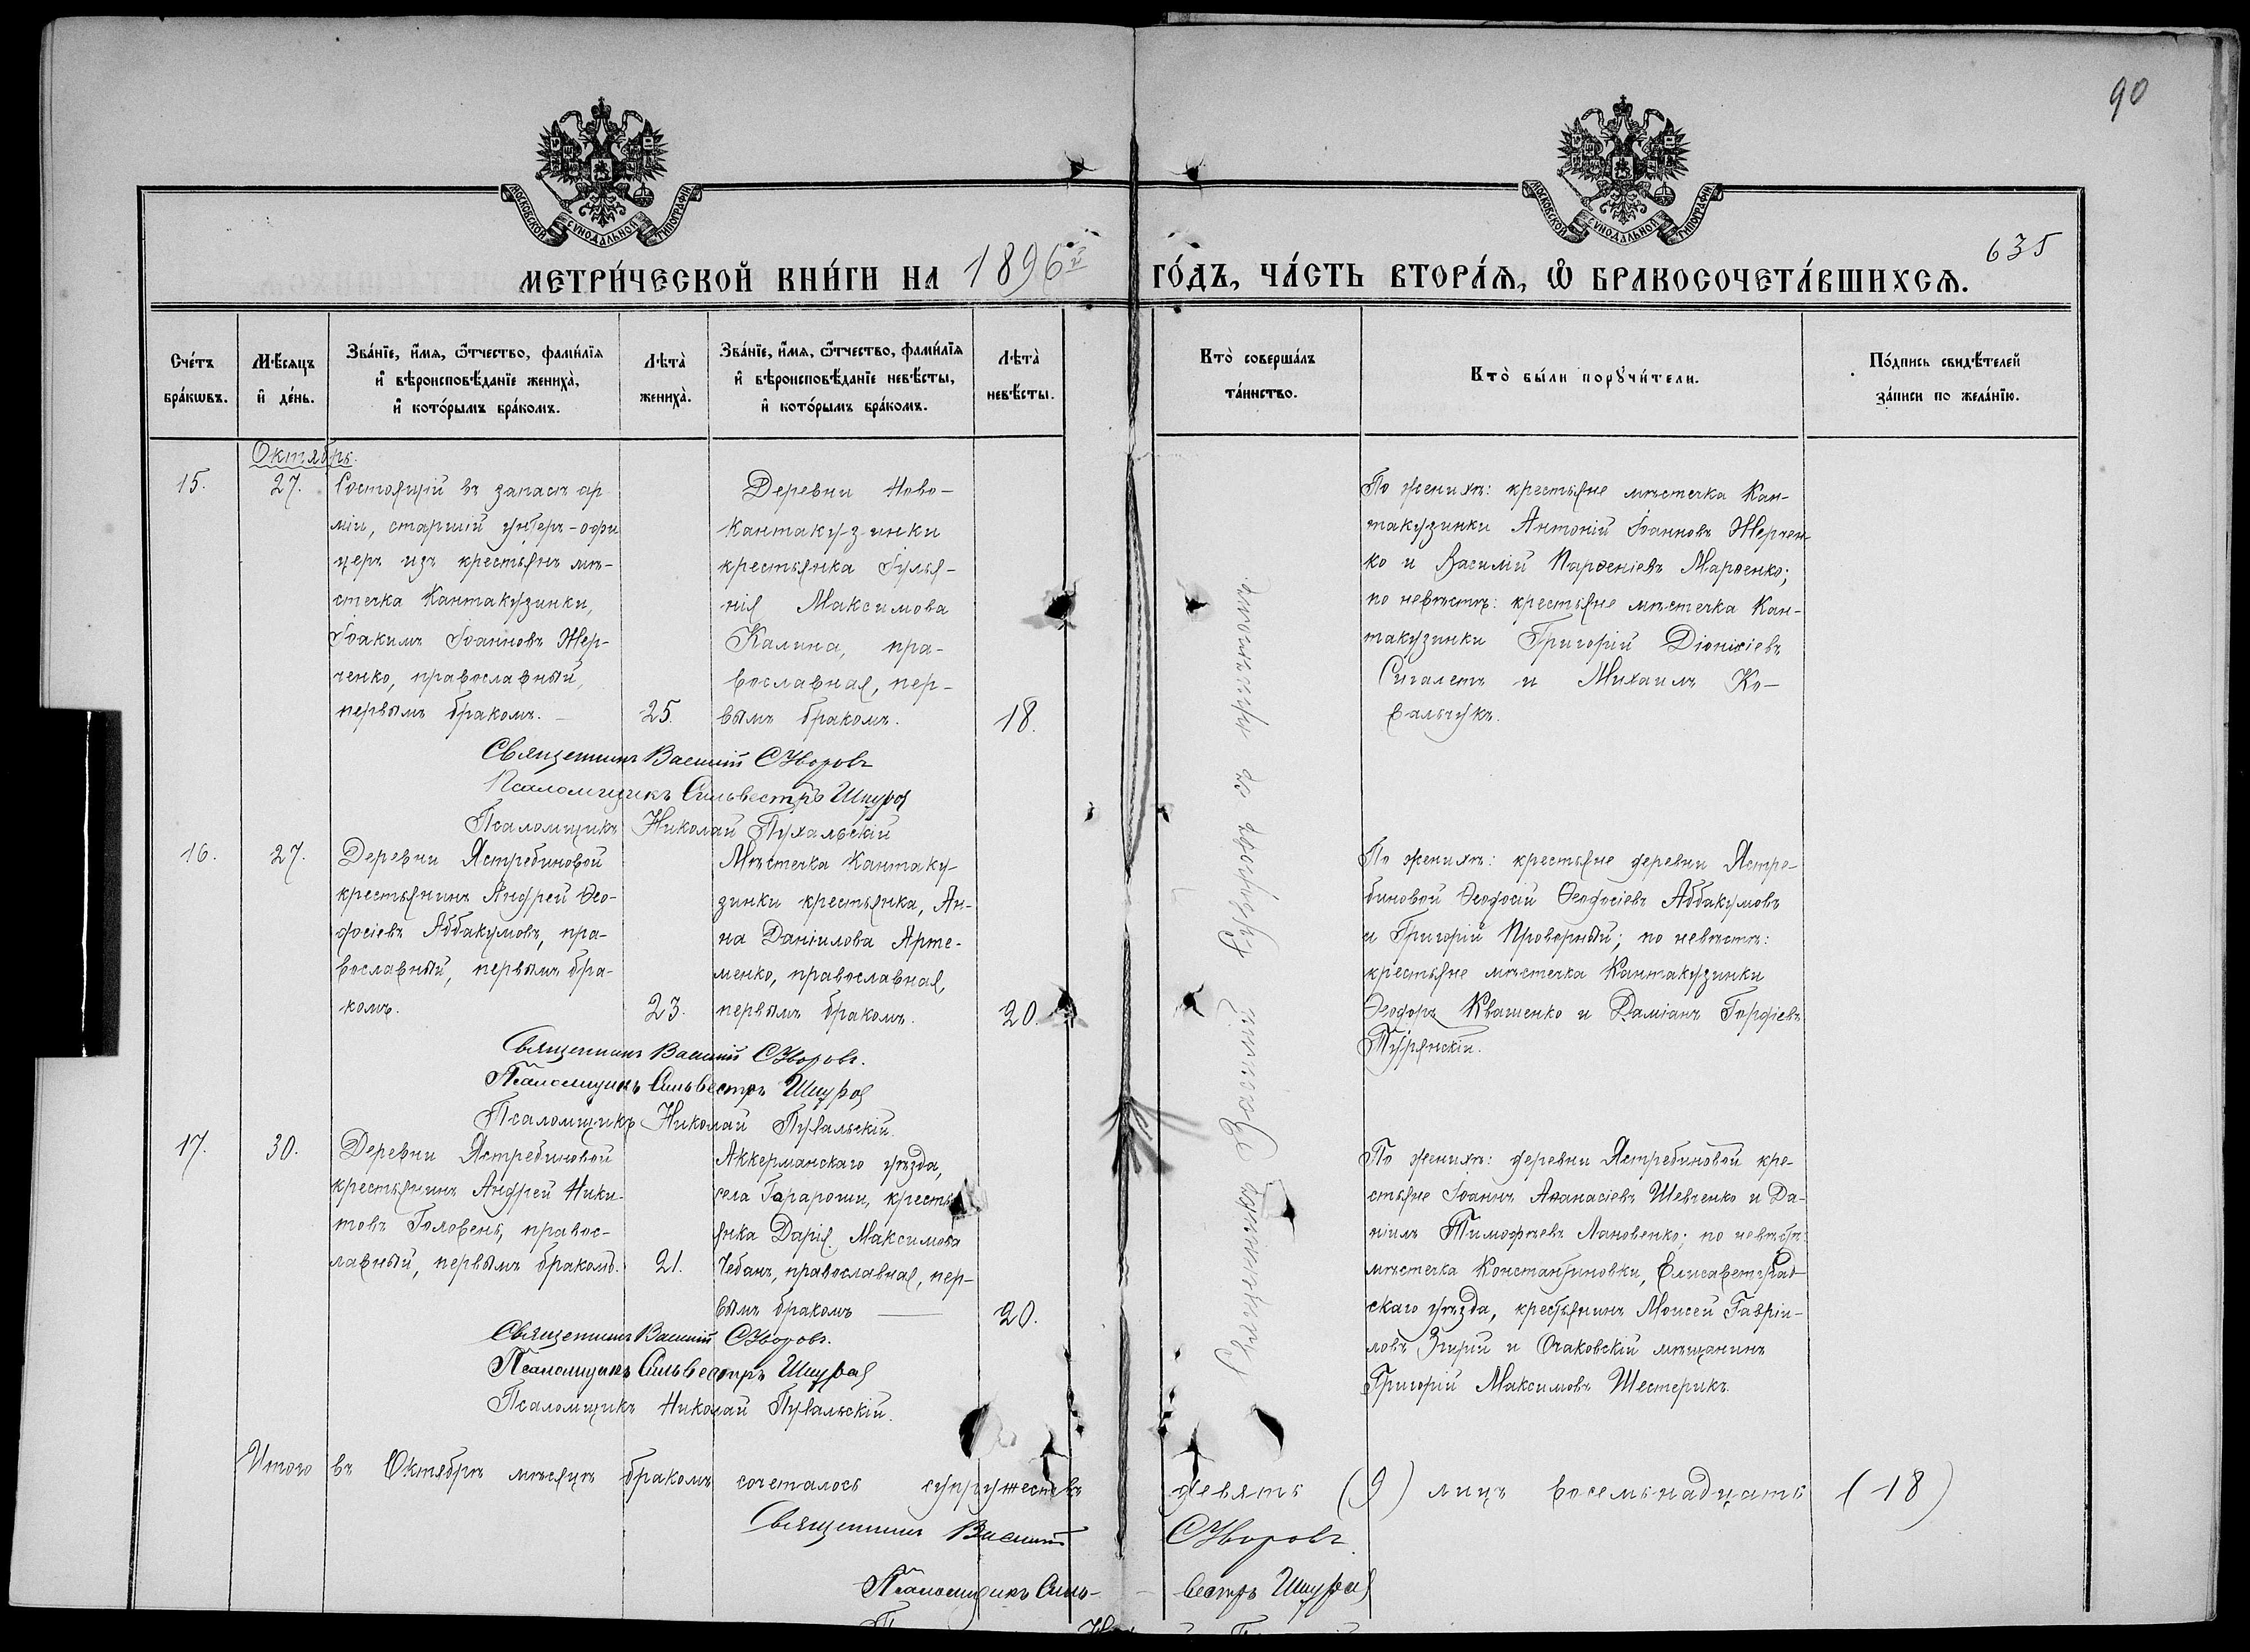 90
635
МОСКОВСКОЙ СѴНОДАЛЬНОЙ ТИПОГРАФІИ
МОСКОВСКОЙ СѴНОДАЛЬНОЙ ТИПОГРАФІИ
МЕТРИ́ЧЕСКОЙ КНИ́ГИ НА 1896й ГО́ДЪ, ЧА́СТЬ ВТОРА́Ѧ, Ѽ БРАКОСОЧЕТА́ВШИХСѦ.
Сче́тъ
бра́кѡвъ.
Мѣ́сѧцъ
и҆ де́нь.
Зва́нїе, и҆́мѧ, ѻ҆́тчество, фамѝлїѧ
и҆ вѣроисповѣ́данїе жениха̀,
и҆ кото́рымъ бра́комъ.
Лѣта̀
жениха̀.
Зва́нїе, и҆́мѧ, ѻ҆́тчество, фамѝлїѧ
и҆ вѣроисповѣ́данїе невѣ́сты,
и҆ кото́рымъ бра́комъ.
Лѣта̀
невѣ́сты.
Кто̀ соверша́лъ
та́инство.
Кто̀ бы́ли порꙋчи́тели.
По́дпись свидѣ́телей
за́писи по жела́нїю.
Октябрь.
15.
27.
Состоящій въ запасѣ ар
міи, старшій унтеръ-офи
церъ изъ крестьянъ мѣ-
стечка Кантакузинки,
Іоакимъ Іоанновъ Жер-
ченко, православный,
первымъ бракомъ. –
25.
Деревни Ново-
кантакузинки
крестьянка Іулья-
нія Максимова
Калина, пра-
вославная, пер-
вымъ бракомъ.
18.
По женихѣ: крестьяне мѣстечка Кан-
такузинки Антоній Іоанновъ Жерчен-
ко и Василій Парѳеніевъ Марѳенко;
по невѣстѣ: крестьяне мѣстечка Кан-
такузинки Григорій Діонисіевъ
Сигалетъ и Михаилъ Ко-
вальчукъ.
Священникъ Василій
Псаломщикъ Сильвестръ
Псаломщикъ Николай Пухальскій
16.
27.
Деревни Ястребиновой
крестьянинъ Андрей Ѳео-
досіевъ Аббакумовъ, пра-
вославный, первымъ бра-
комъ.
23.
Мѣстечка Кантаку-
зинки крестьянка, Ан-
на Даніилова Арте-
менко, православная,
первымъ бракомъ.
20.
По женихѣ: крестьяне деревни Ястре-
биновой Ѳеодосій Ѳеодосіевъ Аббакумовъ
и Григорій Проворный; по невѣстѣ:
крестьяне мѣстечка Кантакузинки
Ѳеодоръ Квашенко и Даміанъ
Священникъ Василій
Псаломщикъ Сильвестръ
Псаломщикъ Николай Пухальскій.
17.
30.
Деревни Ястребиновой
крестьянинъ Андрей Ники-
товъ Головень, правос-
лавный, первымъ бракомъ.
21.
Аккерманскаго уѣзда,
села крестья
янка Дарія Максимова
Чебанъ, православная, пер-
вымъ бракомъ
20.
По женихѣ: деревни Ястребиновой кре-
стьяне Іоаннъ Аѳанасіевъ Шевченко и Да-
ніилъ Тимоѳеевъ Лановенко; по невѣстѣ:
мѣстечка Константиновки, Елисаветград-
скаго уѣзда, крестьянинъ Моисей Гавріи-
ловъ и Очаковскій мѣщанинъ
Григорій Максимовъ Шестерикъ.
Священникъ Василій
Псаломщикъ Сильвестръ
Псаломщикъ Николай Пухальскій.
Священникъ Василій съ причтомъ.
Итого въ Октябрѣ мѣсяцѣ бракомъ сочеталось супружествъ девять (9) лицъ восемьнадцать (18)
Священникъ Василій
Псаломщикъ Сильвестръ